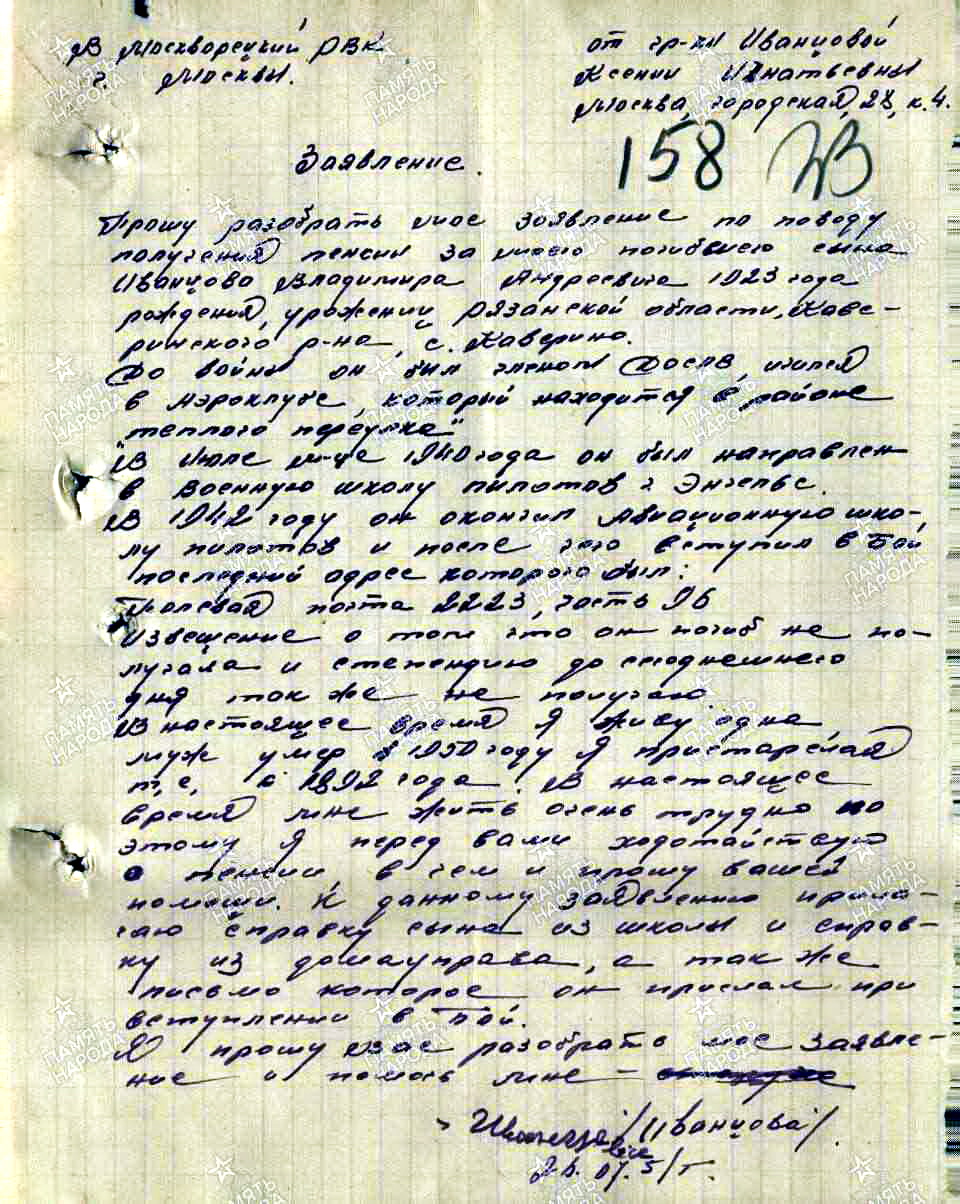 В Москворецкий РВК
г. Москвы.
от гр-ки Иванцовой
Ксении Игнатьевны
Москва, городская, 28, к. 4.
158
Заявление.
Прошу разобрать мое заявление по поводу
получения пенсии за моего погибшего сына
Иванцова Владимира Андреевича 1923 года
рождения, урожении Рязанской области, Каве-
ринского р-на, с. Каверино.
До войны он был членом учился
в Аэроклубе, который находится в районе
"теплого переулка"
В Июле м-це 1940 года он был направлен
в военную школу пилотов г. Энгельс.
В 1942 году он окончил Авиационную шко-
лу пилотов и после чего вступил в Бой
последний адрес которого был:
Полевая почта 2223, часть 96
извещение о том что он погиб не по-
лучала и степендию до сегоднешнего
дня так же не получаю.
В настоящее время Я живу одна
муж умер в 1950 году Я пристарелая
т, е, с 1892 года. В настоящее
время мне жить очень трудно по
этому Я перед вами ходотайствую
о пенсии в чем и прошу вашей
помощи. К данному заявлению прила-
гаю справку сына из школы и справ-
ку из домауправа, а так же
письмо которое он прислал при
вступлении в Бой.
Я прошу вас разобрать мое заявле-
ние и помочь мне –
/Иванцова/